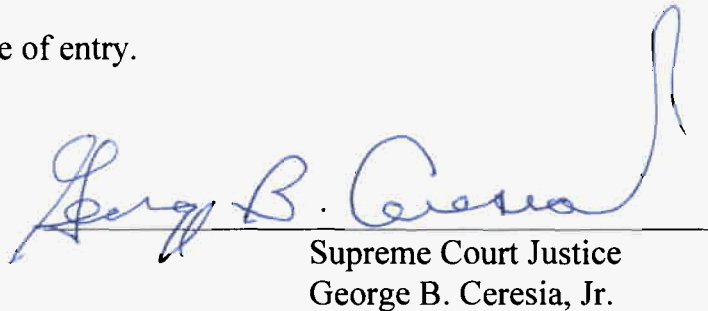 e of entry.
George B. Ceresia
Supreme Court Justice
George B. Ceresia, Jr.